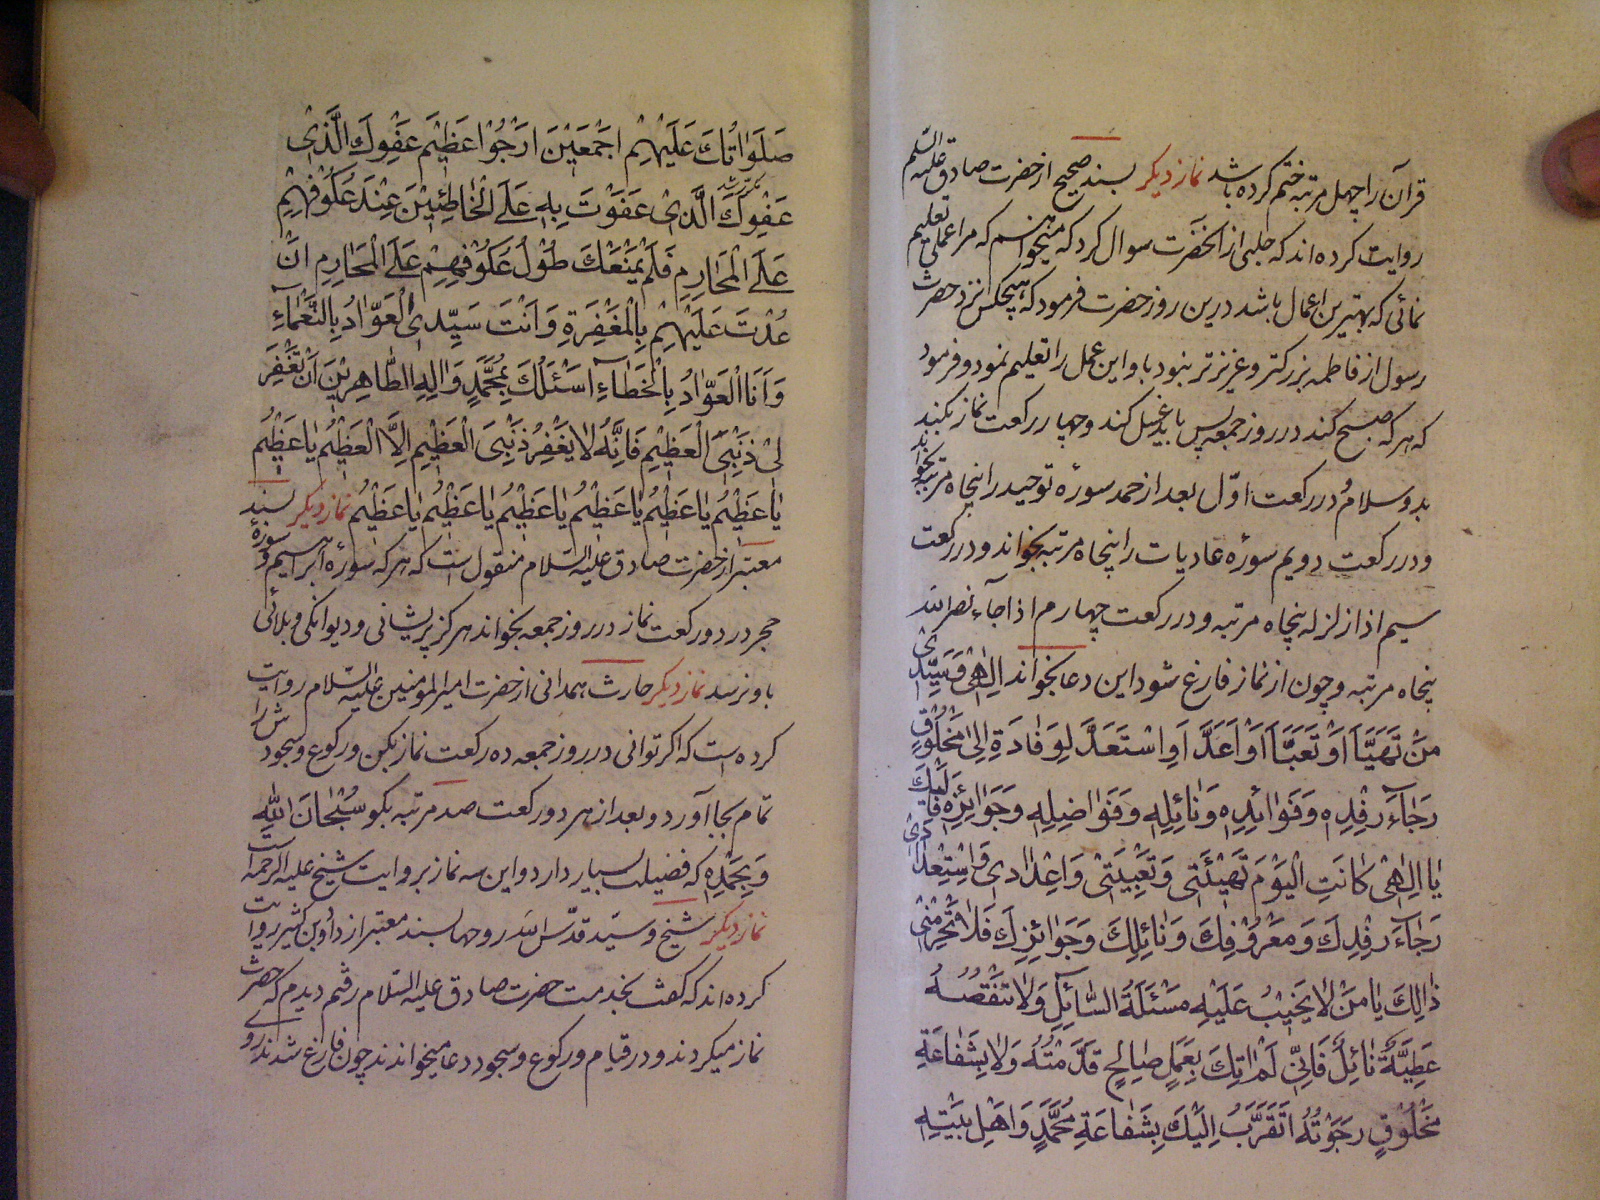 قرآن را چهل مرتبه ختم کرده باشد نماز دیکر بسند صحیح از حضرت صادق علیه السلم
روایت کرده اند که حلبی از انحضرت سوال کرد که میخواهم که مرا عملی تعلیم
نمائی که بهترین اعمال باشد درین روز حضرت فرمود که هیچکس نزد حضرت
رسول از فاطمه بزرکتر و عزیزتر نبود باو این عمل را تعلیم نمود و فرمود
که هرکه صبح کند در روز جمعه پس باید غسل کند و چهار رکعت نماز بکند
بدو سلام و در رکعت اوّل بعد از حمد سورهٔ توحید را پنجاه مرتبه بخواند
و در رکعت دویم سورهٔ عادیات را پنجاه مرتبه بخواند و در رکعت
سیم اذا زلزله پنجاه مرتبه و در رکعت چهارم اذا جاء نصر الله
پنجاه مرتبه و چون از نماز فارغ شود این دعا بخواند اِلٰهی وَ سَیِّدی
مَنْ تَهَیَّاَ اَوْ تَعَبَّاَ اَوْ اَعَدَّ اَوِ اسْتَعَدَّ لِوِفادَةِ اِلیٰ مَخْلُوقٍ
رَجآءَ رِفْدِهِ وَ فَوٰائِدِهِ وَ نٰائِلِهِ وَ فَوٰاضِلِهِ وَ جَوٰائِزِهِ فَاِلَیْكَ
یا اِلٰهی کٰانَتِ الْیَوْمَ تَهْیِئَتی وَ تَعْبِیَتی وَ اِعْدٰادی وَ اسْتِعْدٰادی
رَجآءَ رِفْدِكَ وَ مَعْرُوفِكَ وَ نٰائِلِكَ وَ جَوٰائِزِكَ فَلاٰ تَحْرِمْنی
ذٰلِكَ یٰا مَنْ لاٰ یَخیبُ عَلَیْهِ مَسْئَلَةُ السّٰآئِلِ وَلاٰ تَنْقُصُهُ
عَطِیَّةُ نٰائِلٍ فَاِنّی لَمْ اٰتِكَ بِعَمَلٍ صٰالِحٍ قَدَّمْتُهُ وَلاٰ بِشَفٰاعَةِ
مَخْلُوقٍ رَجَوْتُهُ اَتَقَرَّبُ اِلَیْكَ بِشَفٰاعَةِ مُحَمَّدٍ وَ اَهْلِ بَیْتِهِ
صَلَوٰاتُكَ عَلَیْهِمْ اَجْمَعینَ اَرْجُوا عَظیمَ عَفْوِكَ الَّذی
عَفْوِكَ الَّذی عَفَوْتَ بِهِ عَلَی الْخٰاطِئینَ عِنْدَ عُکُوفِهِمْ
عَلَی الْمَحٰارِمِ فَلَمْ یَمْنَعْكَ طُولُ عُکُوفِهِمْ عَلَی الْمَحٰارِمِ اَنْ
عُدْتَ عَلَیْهِمْ بِالْمَغْفِرَةِ وَ اَنْتَ سَیِّدی الْعَوّٰادُ بِالنَّعْمٰآءِ
وَ اَنَا الْعَوّٰادُ بِالْخَطٰآءِ اَسْئَلُكَ بِمُحَمَّدٍ وَ اٰلِهِ الطّٰاهِرینَ اَنْ تَغْفِرَ
لی ذَنْبِیَ الْعَظیمِ فَاِنَّهُ لاٰ یَغْفِرُ ذَنْبِیَ الْعَظیمِ اِلاَّ الْعَظیمُ یٰا عَظیمُ
یٰا عَظیمُ یٰا عَظیمُ یٰا عَظیمُ یٰا عَظیمُ یٰا عَظیمُ یٰا عَظیمُ نماز دیکر بسند
معتبر از حضرت صادق علیه السلام منقول است که هرکه سورهٔ ابراهیم و سورهٔ
حجر در دو رکعت نماز در روز جمعه بخواند هرکز پریشانی و دیوانکی و بلائی
باو نرسد نماز دیکر حارث همدانی از حضرت امیر المومنین علیه السلام روایت
کرده است که اکر توانی در روز جمعه ده رکعت نماز بکن و رکوع و سجودش را
تمام بجا آور و بعد از هر دو رکعت صد مرتبه بکو سُبْحٰانَ اللهِ
وَ بِحَمْدِهِ که فضیلت بسیار دارد و این سه نماز بروایت شیخ علیه الرحمه است
نماز دیکر شیخ و سیّد قدّس الله روحهما بسند معتبر از داود بن کثیر روایت
کرده اند که کفت بخدمت حضرت صادق علیه السلام رفتم دیدم که حضرت
نماز میکردند و در قیام و رکوع و سجود دعا میخواندند چون فارغ شدند